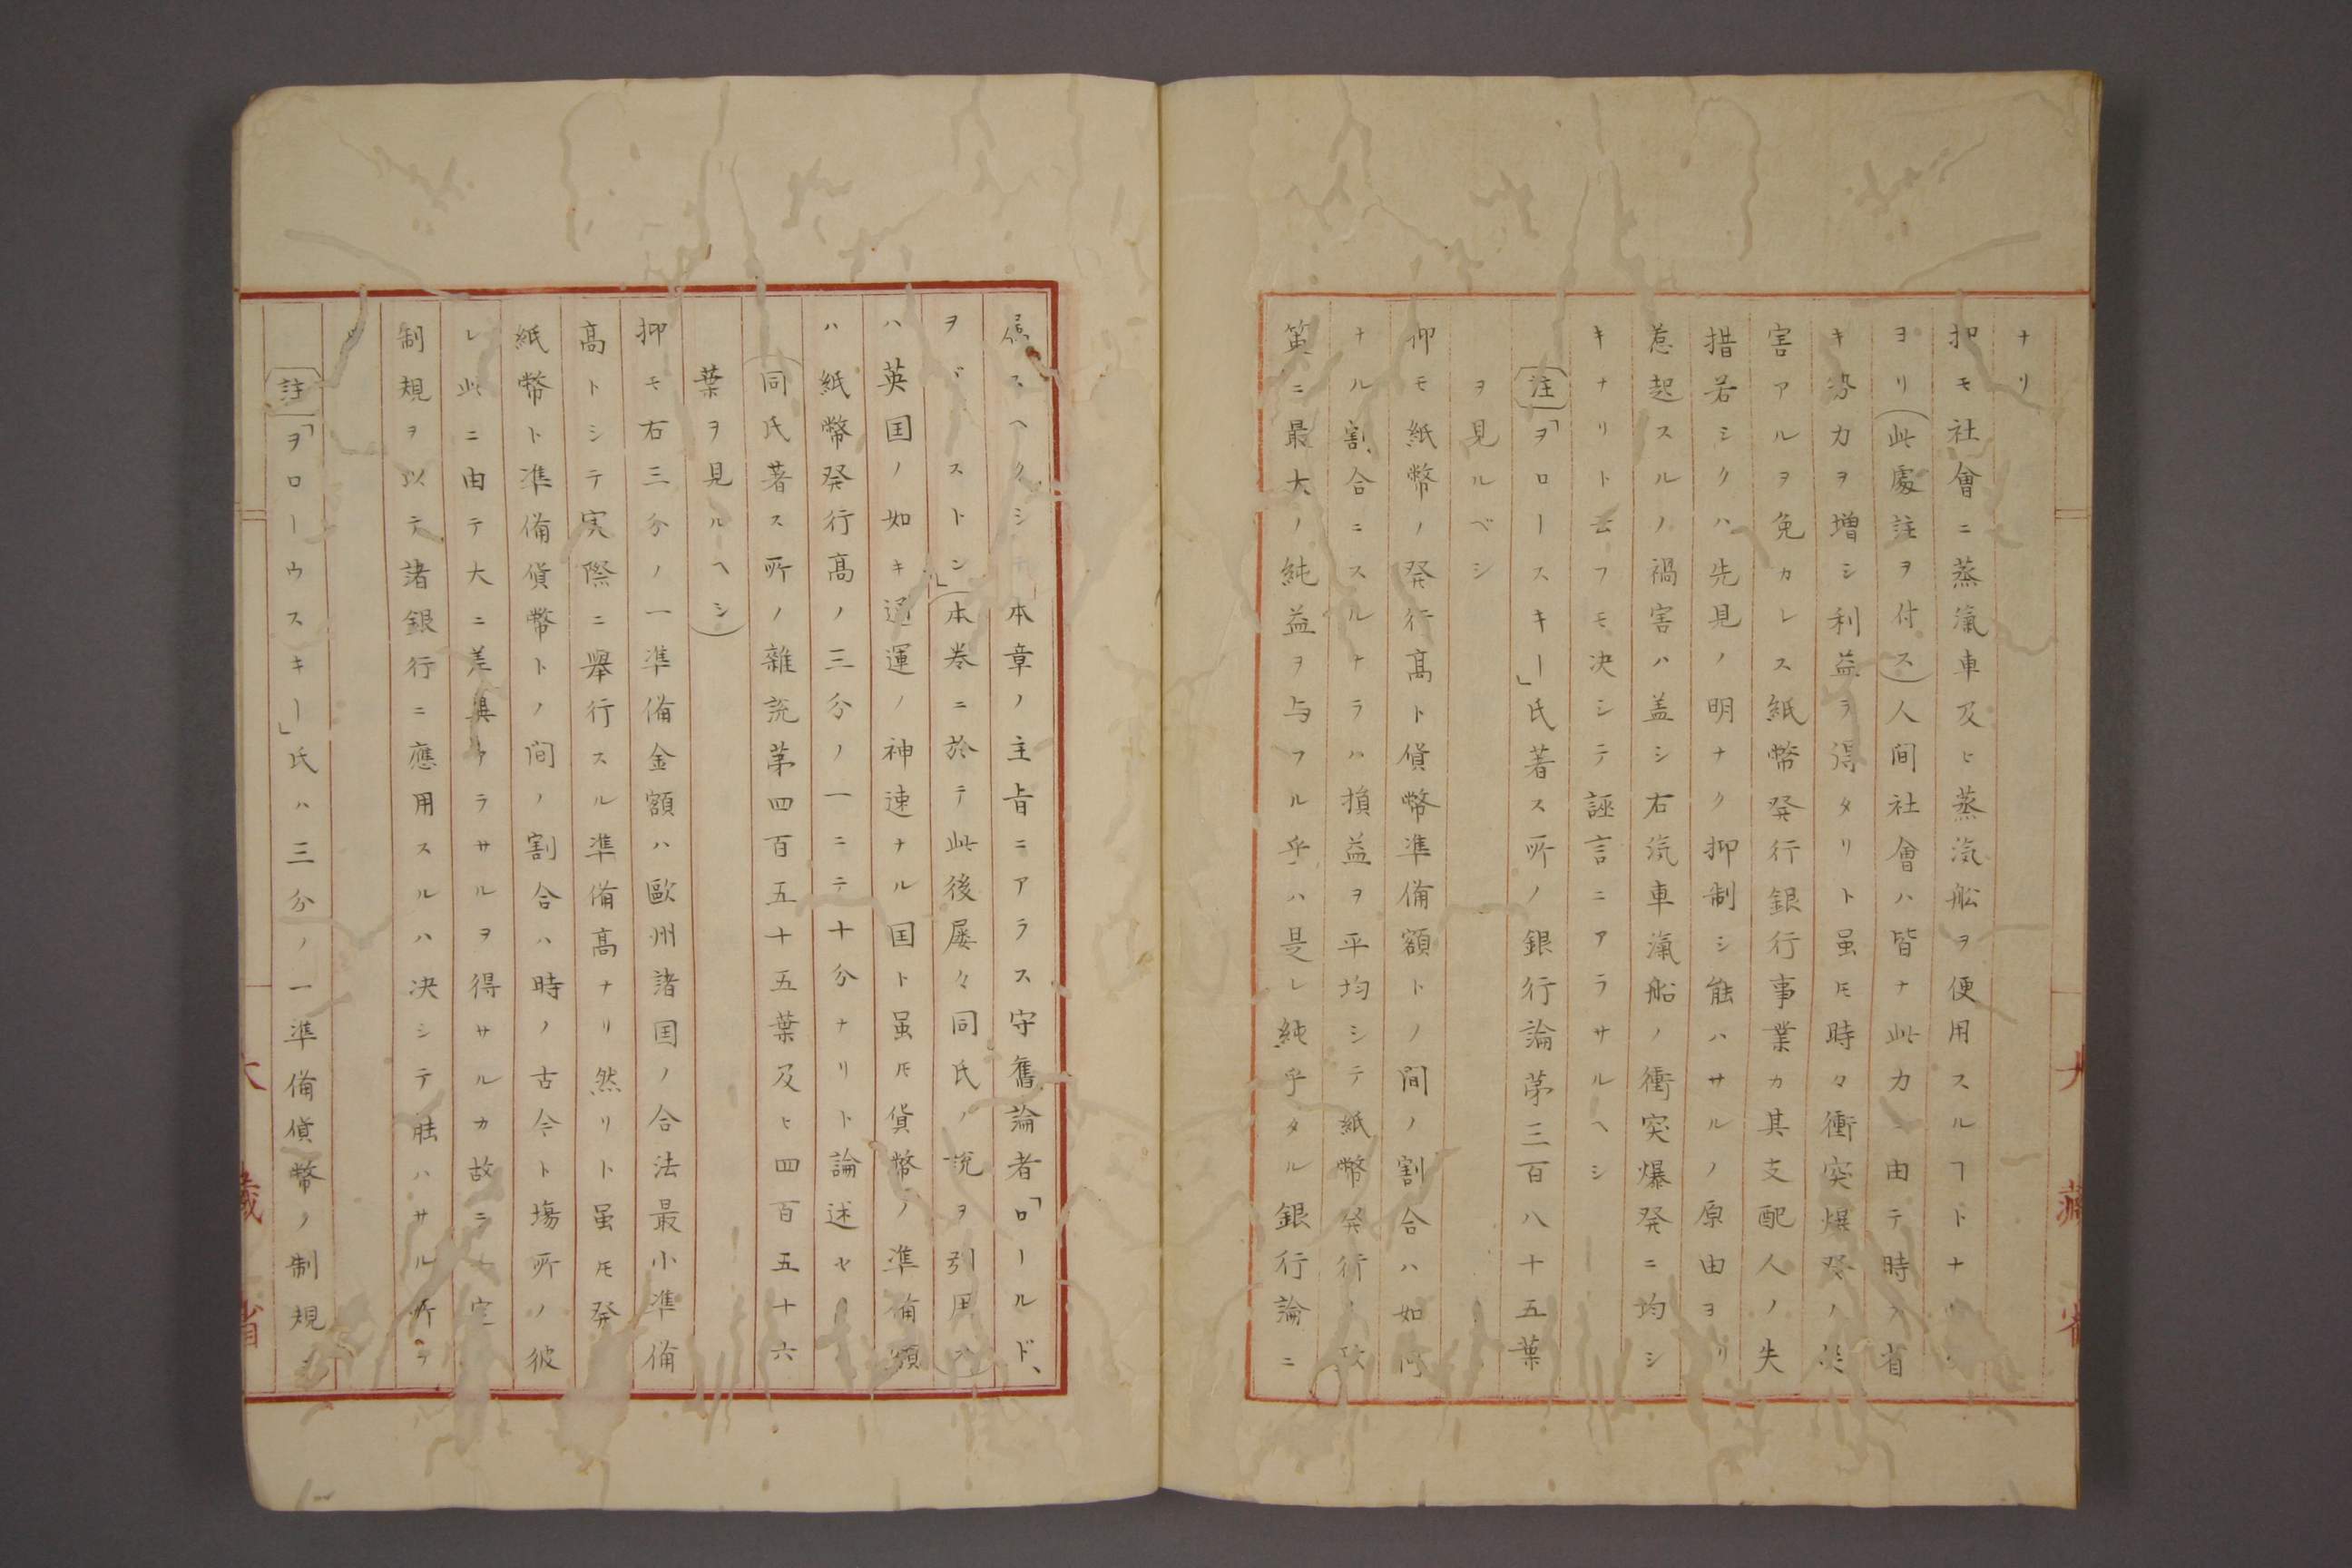 ナリ
抑モ社會ニ蒸滊車及ヒ蒸汽舩ヲ便用スルヿトナ
ヨリ（此處註ヲ付ス）人間社會ハ皆ナ此力 由テ時 省
キ労力ヲ増シ利益ヲ得タリト虽𪜈時々衝突爆発ノ
害アルヲ免カレス紙幣発行銀行事業カ其支配人ノ失
措若シクハ先見ノ明ナク抑制シ能ハサルノ原由ヨリ
惹起スルノ禍害ハ盖シ右汽車滊船ノ衝突爆発ニ均シ
キナリト云フモ决シテ誣言ニアラサルヘシ
註「ヲロースキー」氏著ス所ノ銀行論苐三百八十五葉
ヲ見ルベシ
抑モ紙幣ノ発行髙ト貨幣準備額トノ間ノ割合ハ如何
ナル割合ニスルナラハ損益ヲ平均シテ紙幣発行
筭ニ最大ノ純益ヲ与フル乎ハ是レ純乎タル銀行論ニ
スヘクシ 本章ノ主旨ニアラス守舊論者「ロールド、
ヲヾストン」（本巻ニ於テ此後屡々同氏ノ説ヲ引用ス）
ハ英国ノ如キ通運ノ神速ナル国ト虽𪜈貨幣ノ準備額
ハ紙幣発行髙ノ三分ノ一ニテ十分ナリト論述セ
（同氏著ス所ノ雜説苐四百五十五葉及ヒ四百五十六
葉ヲ見ルヘシ）
抑モ右三分ノ一準備金額ハ歐州諸国ノ合法最小準備
髙トシテ実際ニ舉行スル準備髙ナリ然リト虽𪜈発
紙幣ト準備貨幣トノ間ノ割合ハ時ノ古今ト塲所ノ彼
レ此ニ由テ大ニ差異 ラサルヲ得サルカ故ニ一定
制規ヲ以テ諸銀行ニ應用スルハ决シテ能ハサル所
註「ヲローウスキー」氏ハ三分ノ一準備貨幣ノ制規
大藏省